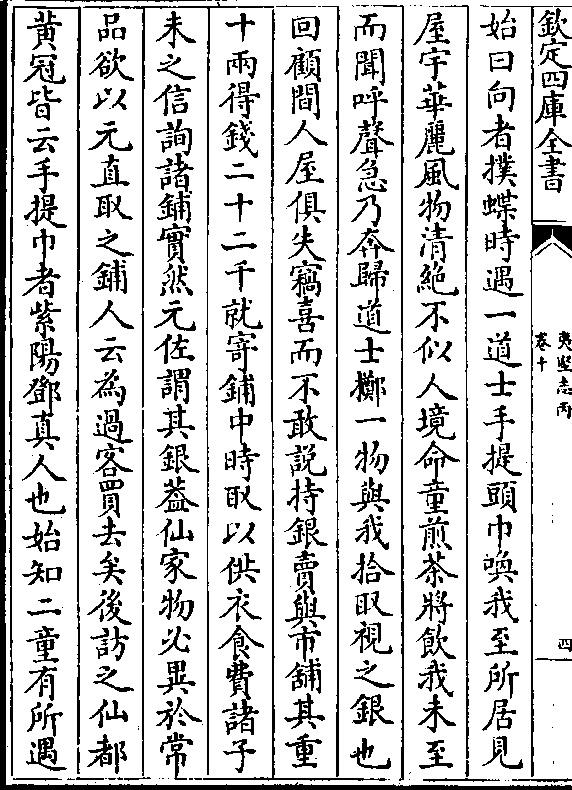 欽定四庫全書
夷堅志丙
卷十
四
始曰向者撲蝶時遇一道士手提頭巾喚我至所居見
屋宇華麗風物清絶不似人境命童煎茶將飲我未至
而聞呼聲急乃奔歸道士擲一物與我拾取視之銀也
回顧間人屋俱失竊喜而不敢説持銀賣與市舖其重
十兩得錢二十二千就寄鋪中時取以供衣食費諸子
未之信詢諸鋪實然元佐謂其銀葢仙家物必異於常
品欲以元直取之鋪人云為過客買去矣後訪之仙都
黄冠皆云手提巾者紫陽鄧真人也始知二童有所遇